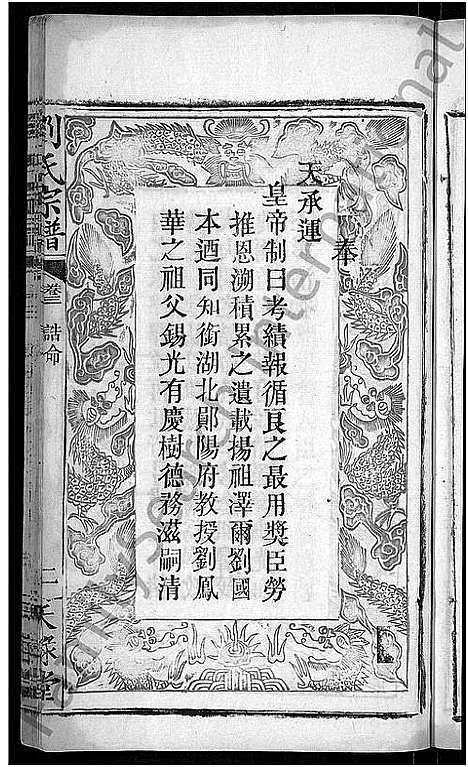 奉
天承運
皇帝制曰考績報循良之最用獎臣勞
推恩溯積累之遺載揚祖澤爾劉國
本迺同知銜湖北鄖陽府教授劉鳳
華之祖父錫光有慶樹德務滋嗣清
劉氏宗譜
卷三
誥命